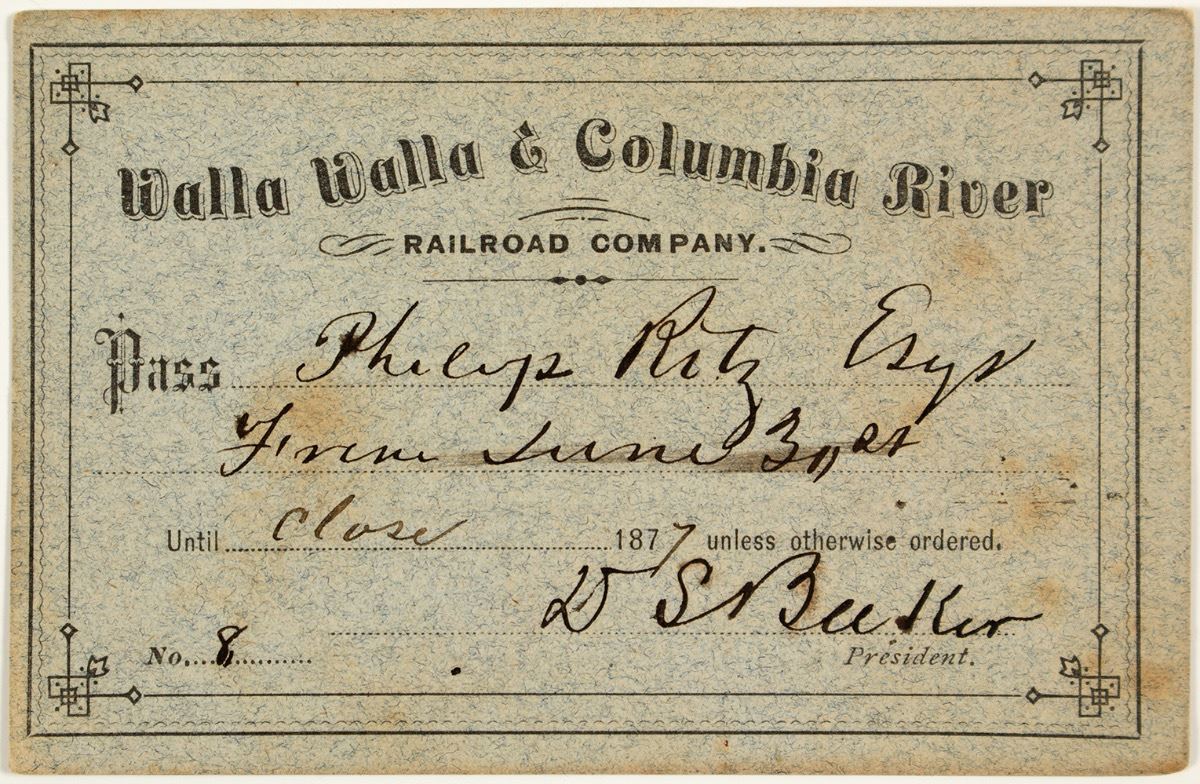 Walla Walla & Columbia River
RAILROAD COMPANY.
Pass Philip Ritz Esqr
From June 30
Until close 1877 unless otherwise ordered.
D S Baker
President.
No. 8